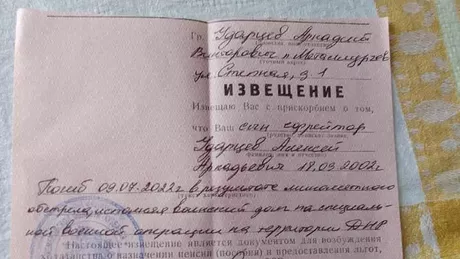 Гр. Ударцев Аркадий
Викторович п. Металлургов
(точный адрес)
ул. Степная, д 1
ИЗВЕЩЕНИЕ
Извещаю Вас с прискорбием о том,
что Ваш сын ефрейтор
Ударцев Алексей
фамилия, имя и отчество)
Аркадьевич 18.03.2002г
Погиб 09.07.2022г в результате минометного
обстрела, исполняя воинский долг на специаль-
ной военной операции на территории ДНР
Настоящее извещение является документом для возбуждения
ходатайства о назначении пенсии (пособия) и предоставления льгот,